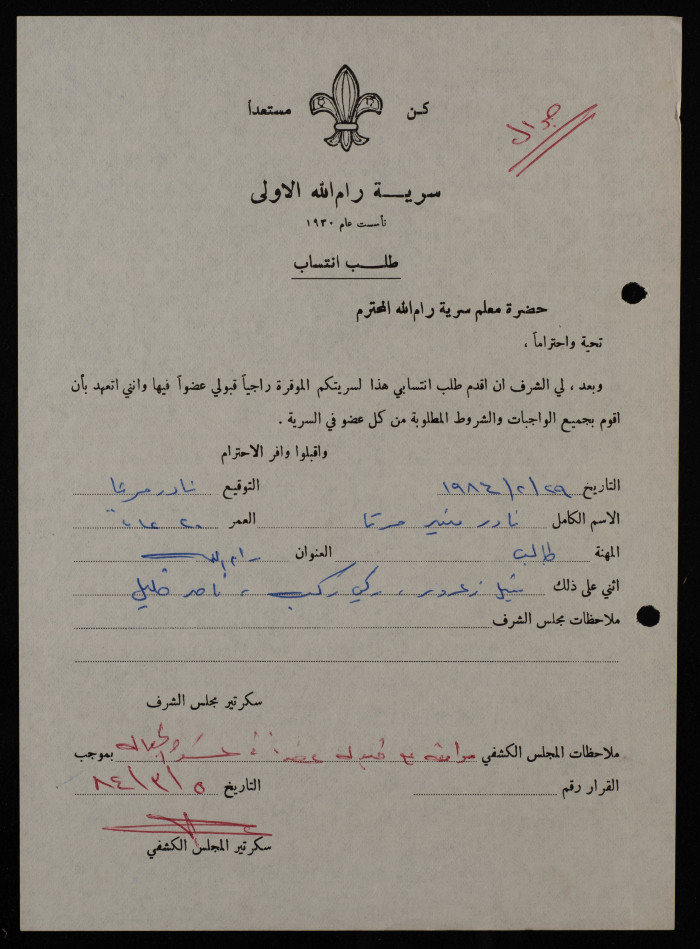 كن مستعداً
جوال
سرية رام الله الاولى
تأسست عام ١٩٣٠
طلب انتساب
حضرة معلم سرية رام الله المحترم
تحية واحتراماً ،
وبعد ، لي الشرف ان اقدم طلب انتسابي هذا لسريتكم الموقرة راجياً قبولي عضواً فيها وانني اتعهد بأن
اقوم بجميع الواجبات والشروط المطلوبة من كل عضو في السرية .
واقبلوا وافر الاحترام
التاريخ ٢٩/٢/١٩٨٤ التوقيع نادر مرتا
الاسم الكامل نادر منير مرتا العمر ٢٠ عاماً
المهنة طالب العنوان رام الله
اثني على ذلك نبيل زعرور ، زكي ركب ، ناصر خليل
ملاحظات مجلس الشرف
سكرتير مجلس الشرف
ملاحظات المجلس الكشفي موافقة على قبوله عضواً في الجوالة بموجب
القرار رقم التاريخ ٥/٣/٨٤
سكرتير المجلس الكشفي